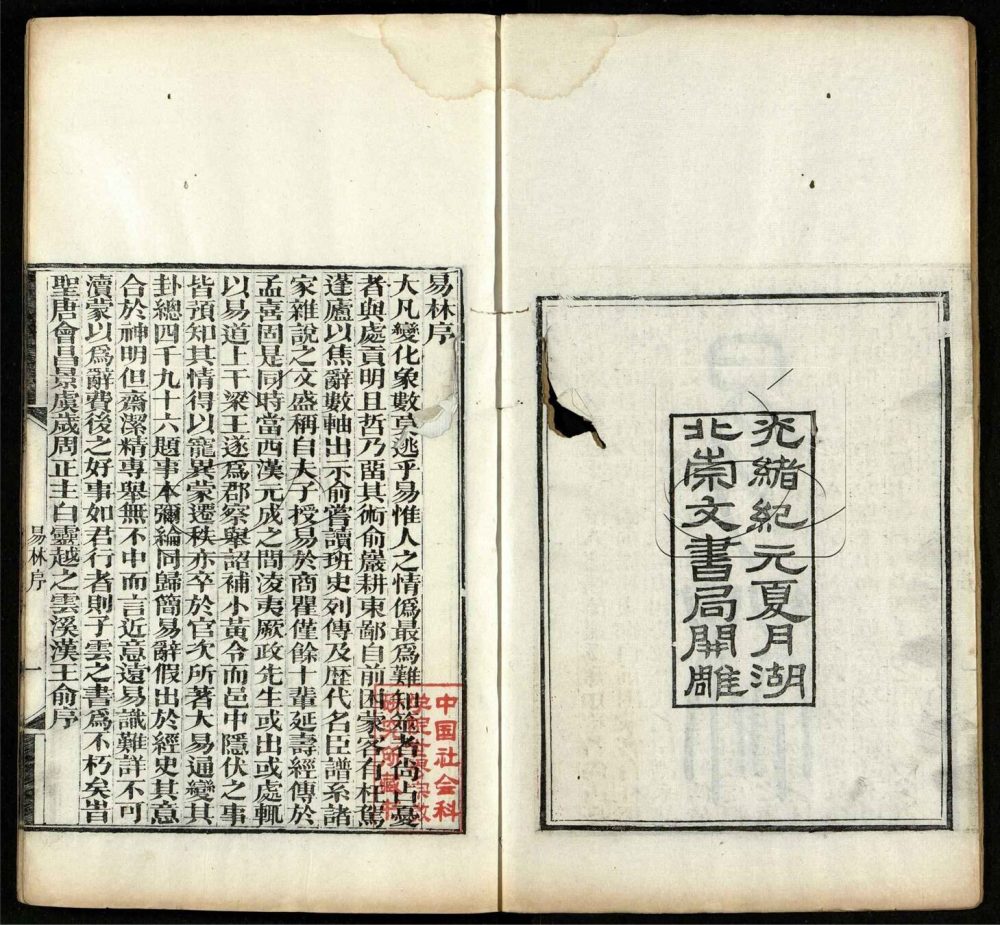 光緒紀元夏月湖
北崇文書局開雕
易林序
大凡變化象數莫逃乎易惟人之情僞最爲難知筮者尚占憂
者與處貢明且哲乃留其術俞巖耕東鄙自前困蒙客有枉駕
蓬廬以焦辭數軸出示俞嘗讀班史列傳及歷代名臣譜系諸
家雜說之文盛稱自夫子授易於商瞿僅餘十輩延壽經傳於
孟喜固是同時當西漢元成之間凌夷厥政先生或出或處輒
以易道上干梁王遂爲郡察舉詔補小黃令而邑中隱伏之事
皆預知其情得以寵異蒙遷秩亦卒於官次所著大易通變其
卦總四千九十六題事本彌綸同歸簡易辭假出於經史其意
合於神明但齋潔精專舉無不中而言近意遠易識難詳不可
瀆蒙以爲辭費後之好事如君行者則子雲之書爲不朽矣旹
聖唐會昌景虔歲周正主白靈越之雲溪漢王俞序
易林序 一
中国社会科
学院世界宗教
研究所藏书